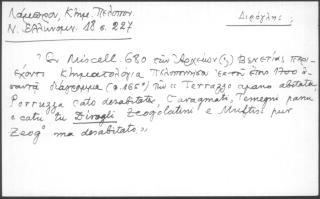 Λάμπρου, Κτημ. Πελοπον.
Ν. Ἑλληνομν. 18 σ. 227
Διρόγλης ;
Ἐν Miscell. 680 τῶν Ἀρχείων (;) Βενετίας περι-
έχονται Κτηματολόγια Πελοποννήσου ἐκ τοῦ ἔτους 1700
διάγραμμα (φ. 165ᵃ) τῶν « Terrazzo apano abitata,
Perruzza cato desabitata Caragmati, Temegni panu
e catu tu Dirogli Zeogolatini e Muftisi pur
Zeog° ma desabitato »